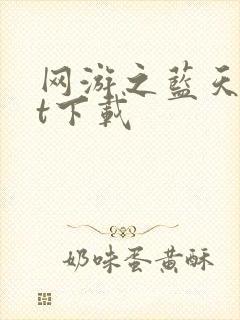 网游之蓝天
t下载
奶味蛋黄酥